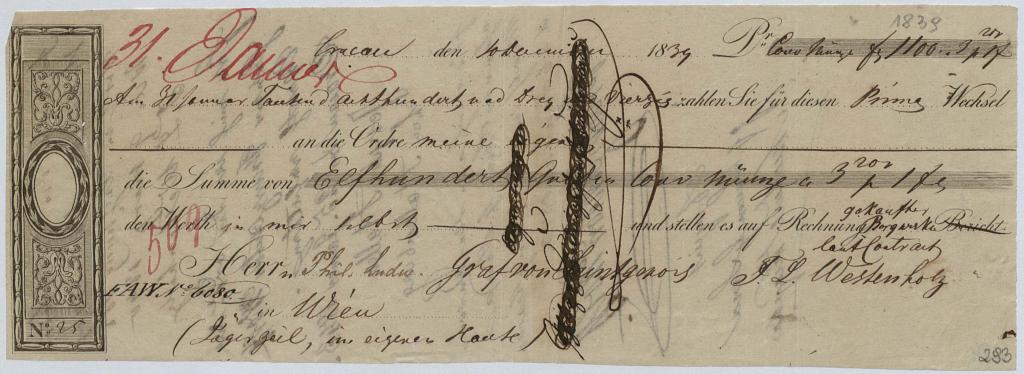 1839
31. Januar
Cracau den 10 December 1839 Pr. Conv Münze fl 1100.. 3 20r p 1 f
Am 31 Januar Tausend achthundert und Drey und Vierzig zahlen Sie für diesen Prima Wechsel
an die Ordre meine eigene
die Summe von Elfhundert Gulden Conv Münze a 3 20r p 1 fl
den Werth in mir selbst und stellen es auf Rechnung gekaufter Bergwerke Bericht
laut Contract
508
Herrn Phil. Ludw. Graf von Saintgenois J. L. Westenholz
EAW. No 6080
in Wien
(Jägerzeil, im eigenen Hause)
No: 25
293